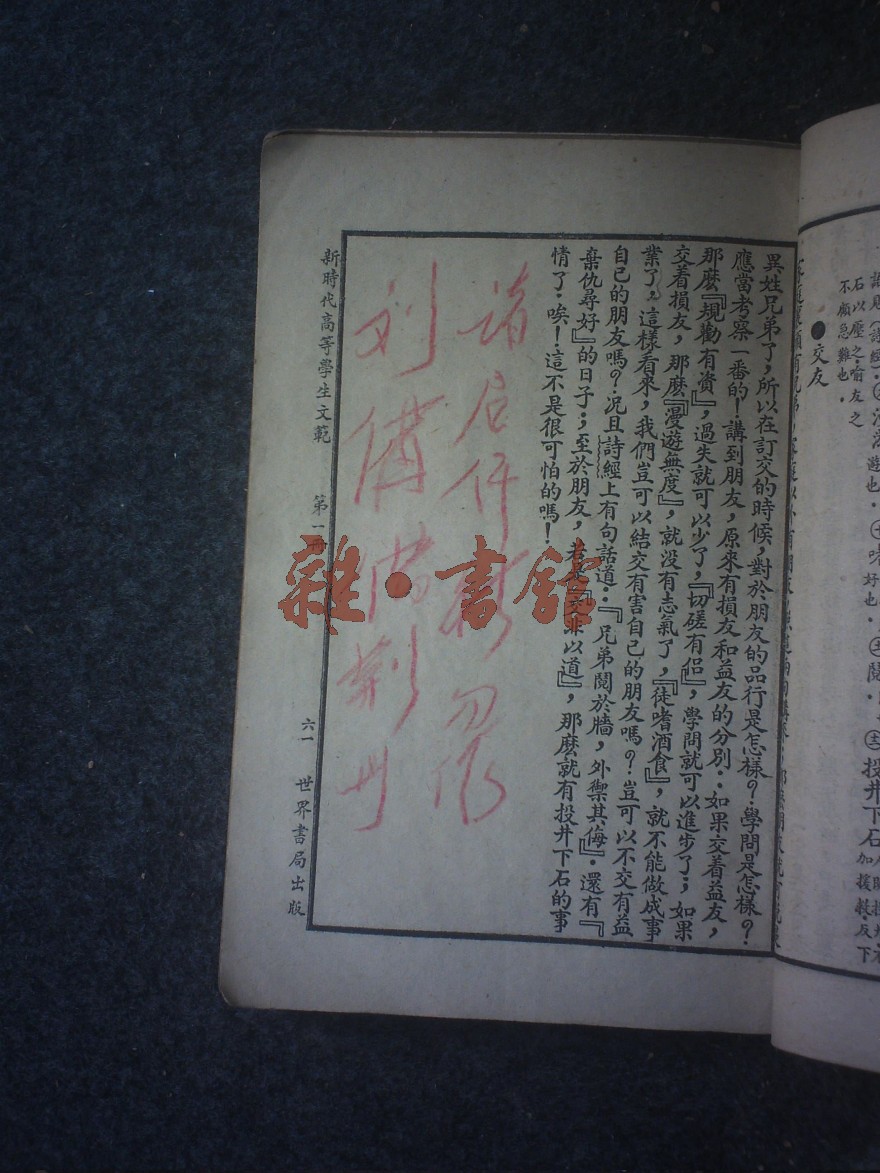 ●交友
石以壓之喻友之
不顧急難也。
投井下石
異姓兄弟了，所以在訂交的時候，對於朋友的品行是怎樣？學問是怎樣？
應當考察一番的！講到朋友，原來有損友和益友的分別：如果交着益友，
那麼『規勸有資』，過失就可以少了，『切磋有侶』，學問就可以進步了；如果
交着損友，那麼『漫遊無度』，就沒有志氣了，『徒嗜酒食』，就不能做成事
業了。這樣看來，我們豈可以結交有害自己的朋友嗎？豈可以不交有益
自己的朋友嗎？況且詩經上有句話道：『兄弟鬩於牆，外禦其侮』。還有『
棄仇尋好』的日子；至於朋友，若是『交非以道』，那麼就有投井下石的事
情了。唉！這不是很可怕的嗎！
刘備
新時代高等學生文範
第一冊
六一
世界書局出版
雜·書館